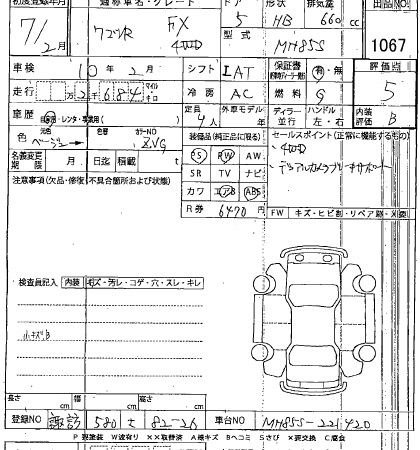 初度登録年月 通称車名・グレード ドア 形状 排気量 出品NO
7/2月 ワゴンR FX 4WD 5 HB 660 cc
型式 MH85S 1067
車検 10年2月 シフト IAT 保証書 有・無 評価点
走行 万2千684 マイル キロ 冷房 AC 燃料 G 5
車歴 自家用・レンタ・事業用( ) 定員 4人 外車モデル 年 ディーラー 並行 ハンドル 左・右 内装評価 B
色 元色 ベージュ 色替 カラーNO ZVG 装備品(純正品に限る) セールスポイント(正常に機能するもの)
PS PW AW ・4WD
名義変更期限 月 日迄 積載 t SR TV ナビ ・デュアルカメラブレーキサポート
注意事項(欠品・修復・不具合箇所および状態) カワ エアB ABS
R券 6470円 FW キズ・ヒビ割・リペア跡・X(要)
検査員記入 内装 キズ・汚レ・コゲ・穴・スレ・キレ
小キズB
長さ cm 幅 cm 高さ cm
登録NO 諏訪 580 せ 82-26 車台NO MH85S-221420
P要塗装 W波有り XX取替済 A線キズ Bヘコミ Sさび X要交換 C腐食